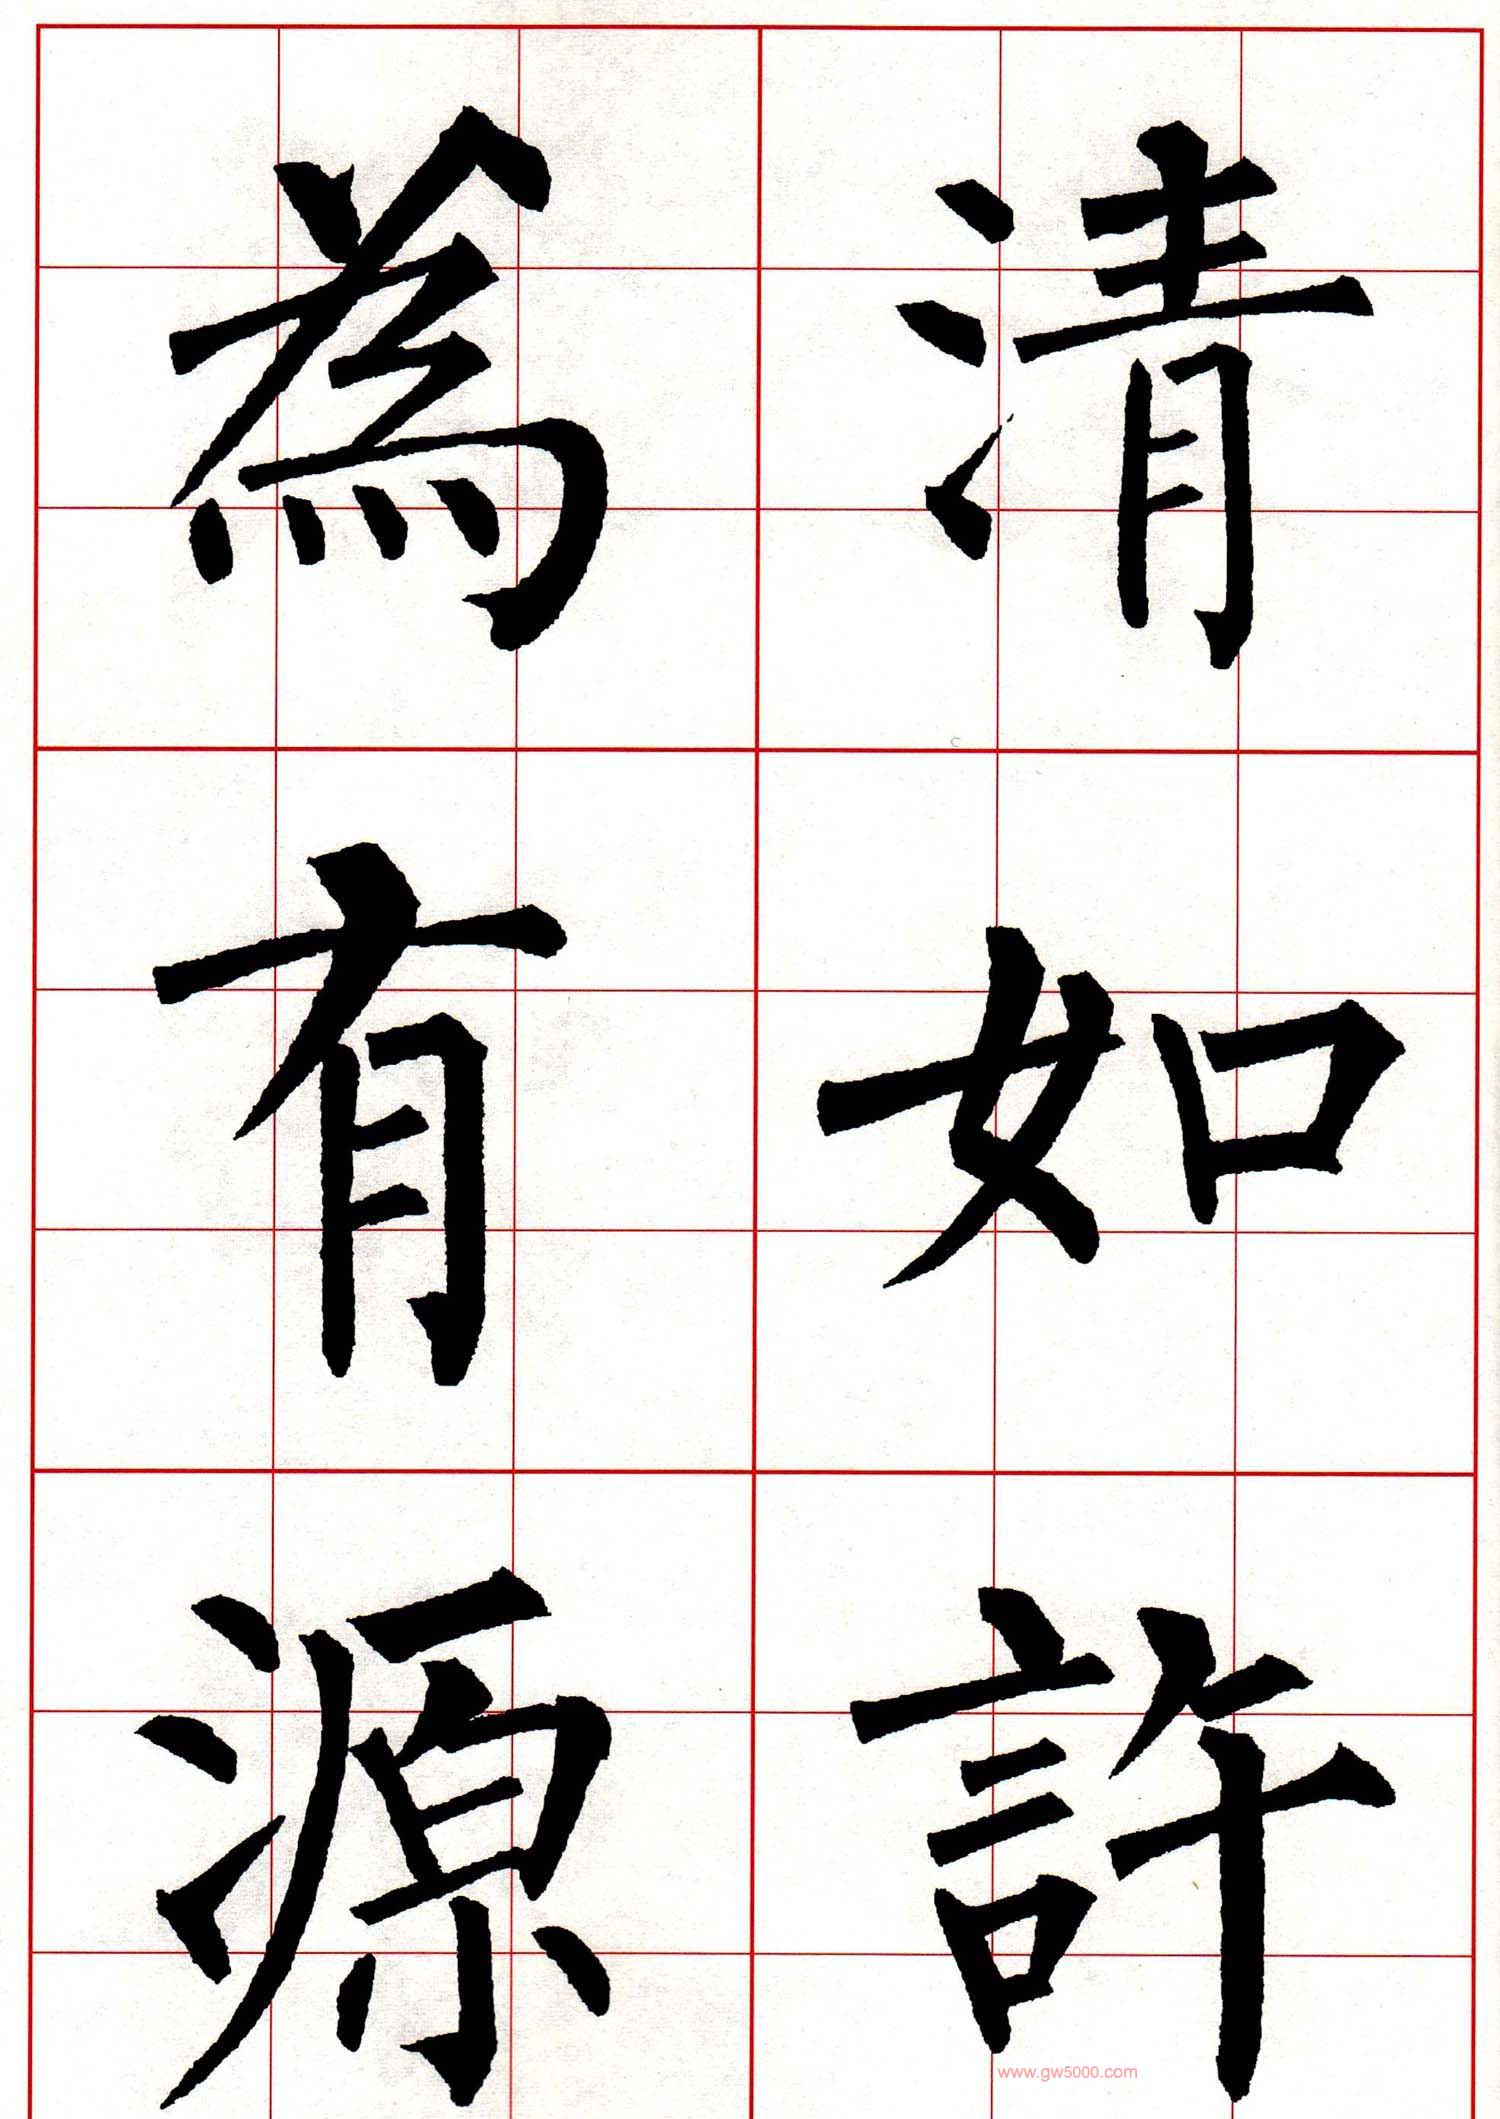 清如許
為有源
www.gw5000.com